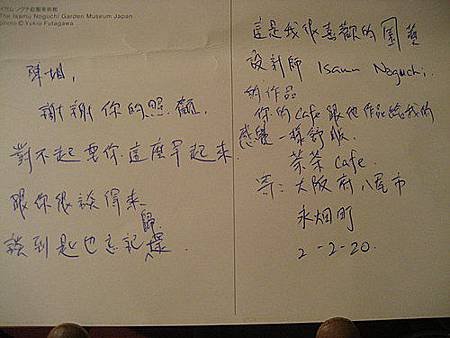 イサム・ノグチ庭園美術館
The Isamu Noguchi Garden Museum Japan
photo © Yukio Futagawa
陳姐,
謝謝你的照顧.
對不起要你這麼早起來
跟你很談得來.
談到匙也忘記歸還
這是我很喜歡的園藝
設計師 Isamu Noguchi.
的作品
你的 Cafe 跟他作品給我的
感覺一樣舒服.
茶茶 Cafe.
大阪府八尾市
永畑町
2-2-20.